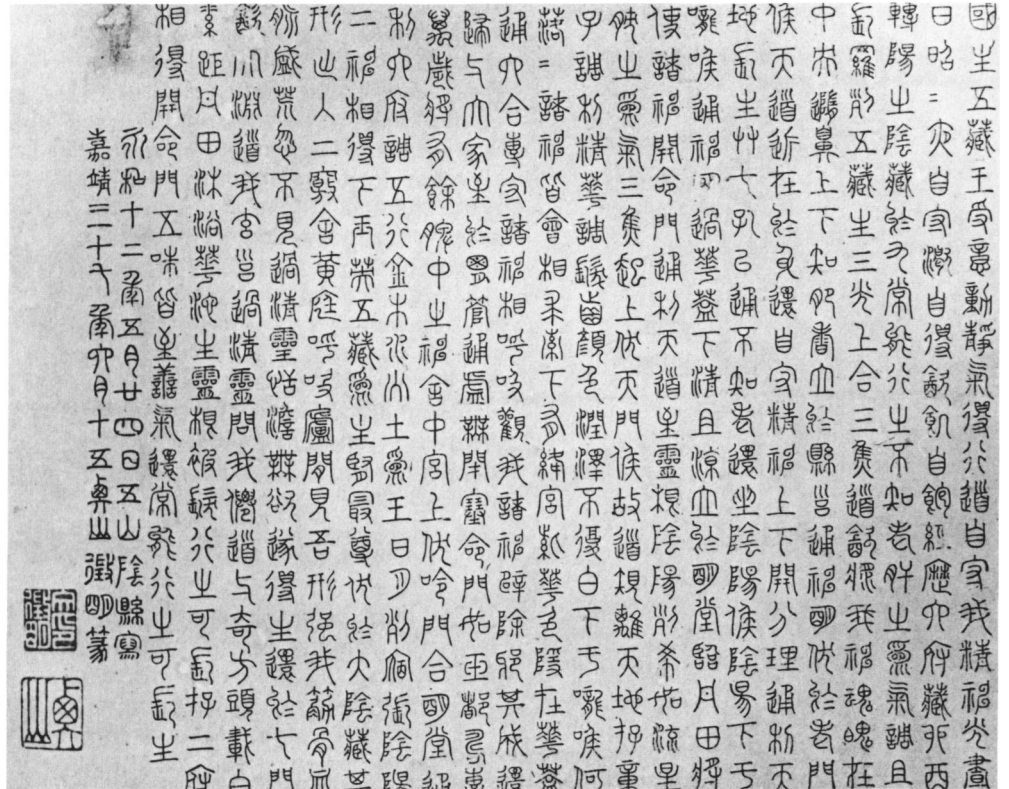 國主五藏王受意動靜氣得行道自守我精神光晝
日昭=夜自守渴自得飲飢自飽經歷六府藏卯酉
轉陽之陰藏於九常能行之不知老肝之為氣調且
長羅列五藏生三光上合三焦道飲漿我神魂魄在
中央隨鼻上下知肥香立於懸雍通神明伏於老門
候天道近在於身還自守精神上下開分理通利天
地長生草七孔已通不知老還坐陰陽候陰陽下于
嚨喉通神明過華蓋下清且涼立於明堂臨丹田將
使諸神開命門通利天道至靈根陰陽列布如流星
肺之為氣三焦起上伏天門候故道規離天地存童
子調利精華調髮齒顏色潤澤不復白下于嚨喉何
落=諸神皆會相求索下有絳宮紫華色隱在華蓋
通六合專守諸神相呼吸觀我諸神辟除邪其成還
歸與大家至於胃管通虛無閉塞命門如玉都壽專
萬歲將有餘脾中之神舍中宮上伏命門合明堂通
利六府調五行金木水火土為王日月列宿張陰陽
二神相得下玉英五藏為主腎最尊伏於大陰藏其
形出入二竅舍黃庭呼吸廬間見吾形強我筋骨血
脈盛荒忽不見過清靈恬澹無欲遂得生還於七門
飲大淵道我玄雍過清靈問我仙道與奇方頭載白
素距丹田沐浴華池生靈根被髮行之可長存二府
相得開命門五味皆至善氣還常能行之可長生
永和十二年五月廿四日五山陰縣寫
嘉靖三十七年六月十五山徵明篆